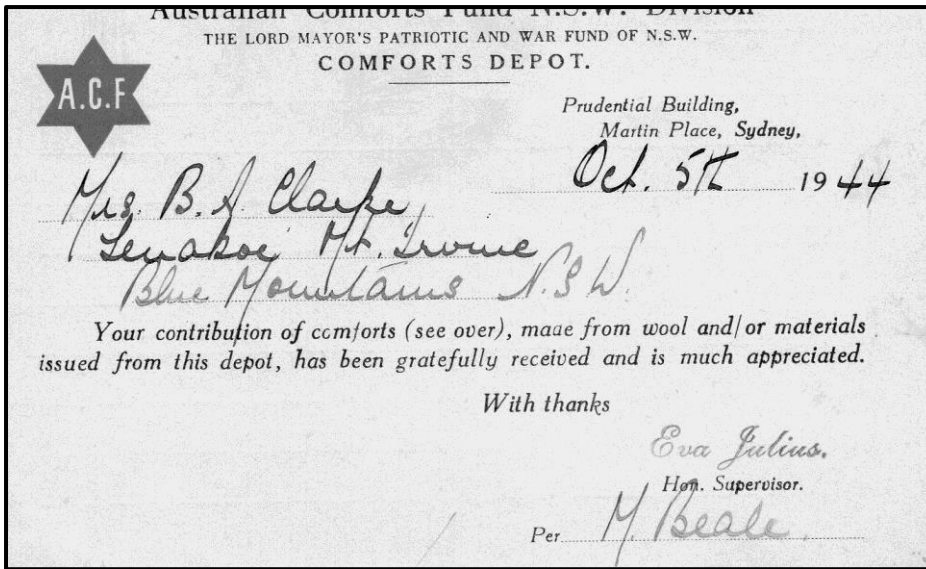 Australian Comforts Fund N.S.W. Division
THE LORD MAYOR'S PATRIOTIC AND WAR FUND OF N.S.W.
COMFORTS DEPOT.
A.C.F
Prudential Building,
Martin Place, Sydney,
Oct. 5th 1944
Mrs. B. A. Clarke,
Mt. Irvine
Blue Mountains N.S.W.
Your contribution of comforts (see over), made from wool and/or materials
issued from this depot, has been gratefully received and is much appreciated.
With thanks
Eva Julius.
Hon. Supervisor.
Per M. Beale